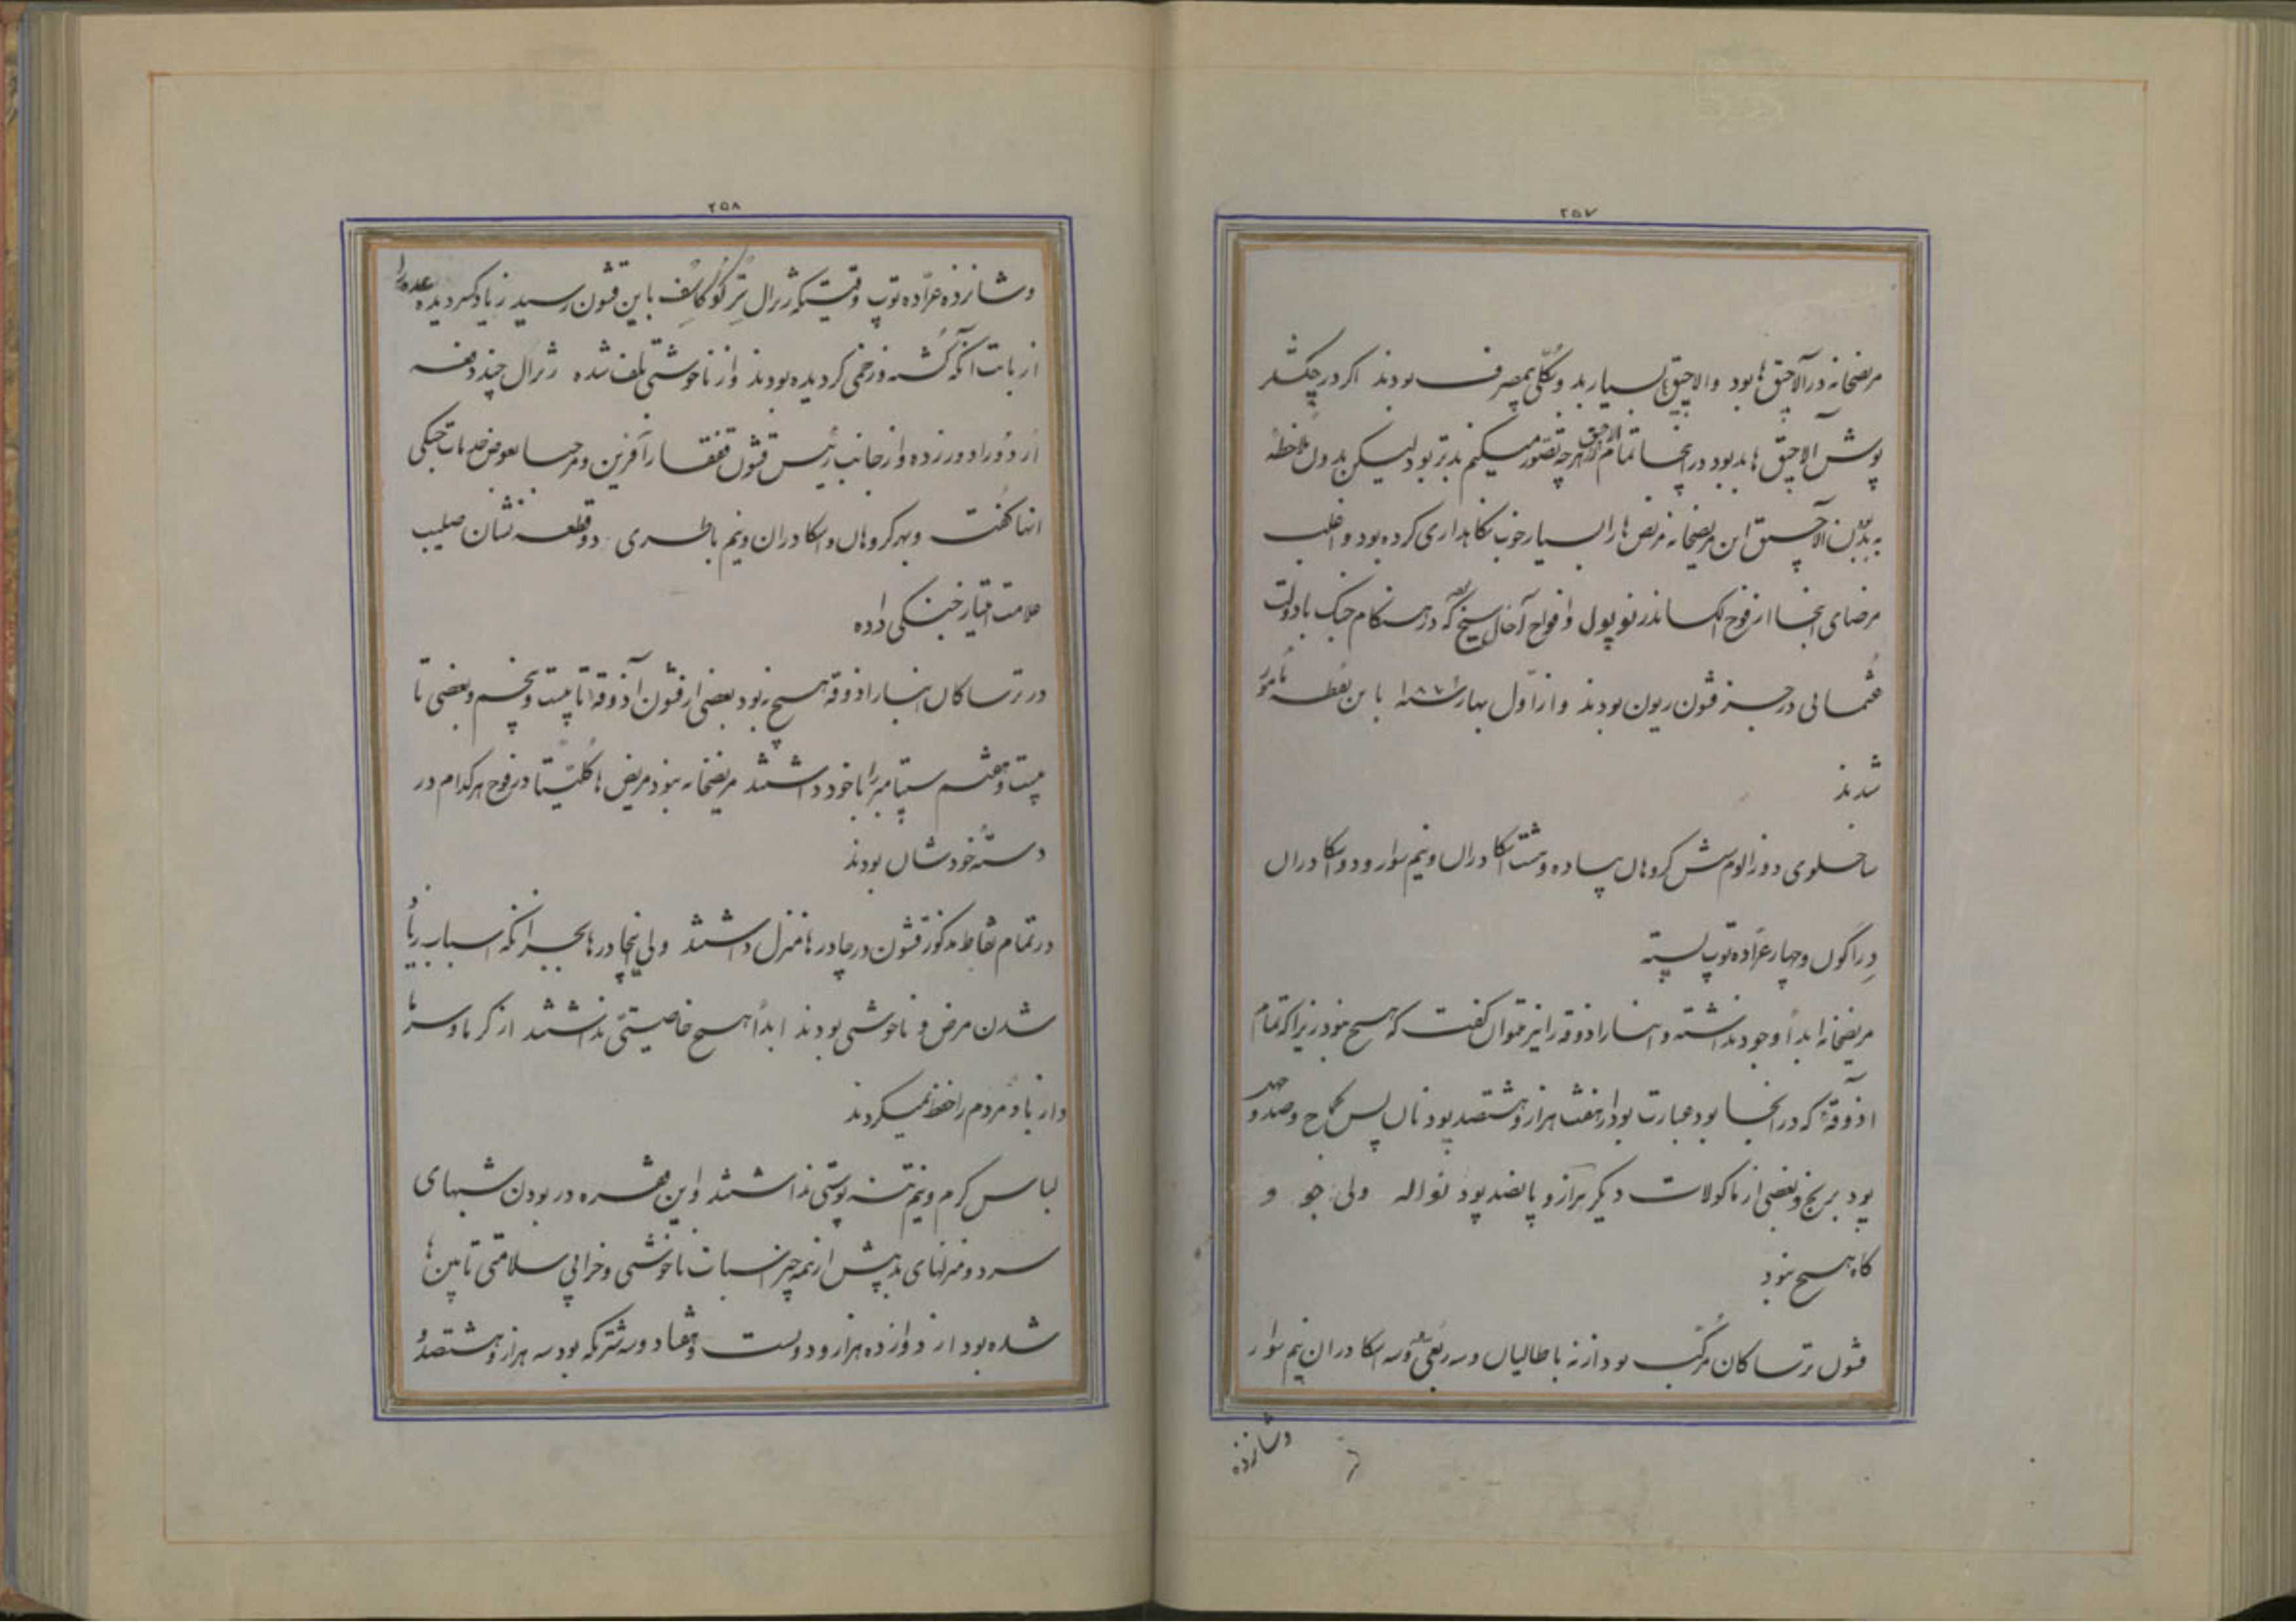 ۲۵۷
مریضخانه در آلاچیق ها بود والاچیق‌ها بسیار بد و بکلّی بیمصرف بودند اگر در چکشلر
پوش آلاچیق ها بد بود در اینجا تمام آلاچیق هرچه تصوّر میکنیم بدتر بود لیکن بدون ملاحظهٔ
بد بودن آلاچیق این مریضخانه مریض ها را بسیار خوب نگاهداری کرده بود و اغلب
مرضای اینجا از فوج الکساندرنوپول و افواج آخال سیخ بود که در هنگام جنگ با دولت
عثمانی در جزء قشون ریون بودند و از اوّل بهار سنه ۱۸۷۹ باین نقطه مأمور
شدند
ساخلوی دوزالوم شش کروهان پیاده و هشت اسکادران و نیم سوار و دو اسکادران
دِراگون و چهار عرّاده توپ بسته
مریضخانه ابداً وجود نداشته و انبار اذوقه را نیز میتوان گفت که هیچ نبود زیرا که تمام
آذوقهٔ که در اینجا بود عبارت بود از هفت هزار و هشتصد پود نان پس کماج و صد و چهار
پود برنج و بعضی از ماکولات دیگر هزار و پانصد پود نواله ولی جو و
کاه هیچ نبود
قشون ترساکان مُرکّب بود از نه باطالیان و سه ربعی و سه اسکادران نیم سوار
وشانزده
۲۵۸
وشانزده عرّاده توپ وقتیکه ژنرال تِرکوکاسُف باین قشون رسید زیاد کسر دیده عده را
از بابت آنکه کُشته و زخمی گردیده بودند و از ناخوشی تلف شده ژنرال چند دفعه
اُردو را دور زده و از جانب رئیس قشون قفقاز آفرین و مرحبا بعوض خدمات جنگی
انها گفت و بهر کروهان و اسکادران و نیم باطری دو قطعه نشان صلیب
علامت امتیاز جنگی داده
در ترساکان انبار اذوقه هیچ نبود بعضی از قشون آذوقه تا بیست و پنجم و بعضی تا
بیست و هفتم سپتامبر را با خود داشتند مریضخانه نبود مریض ها کُلیّتاً در فوج هر کدام در
دستهٔ خودشان بودند
در تمام نقاط مذکور قشون در چادرها منزل داشتند ولی اینچادرها بجز انکه اسباب زیاد
شدن مرض و ناخوشی بودند ابداً هیچ خاصیتی نداشتند از گرما و سرما
و از باد مردم را حفظ نمیکردند
لباس گرم و نیم تنه پوستی نداشتند و این فقره در بودن شبهای
سرد و منزلهای بد بیش از همه چیز اسباب ناخوشی و خرابی سلامتی تابین‌ها
شده بود از دوازده هزار و دویست و هفتاد و سه شتر که بود سه هزار و هشتصد و